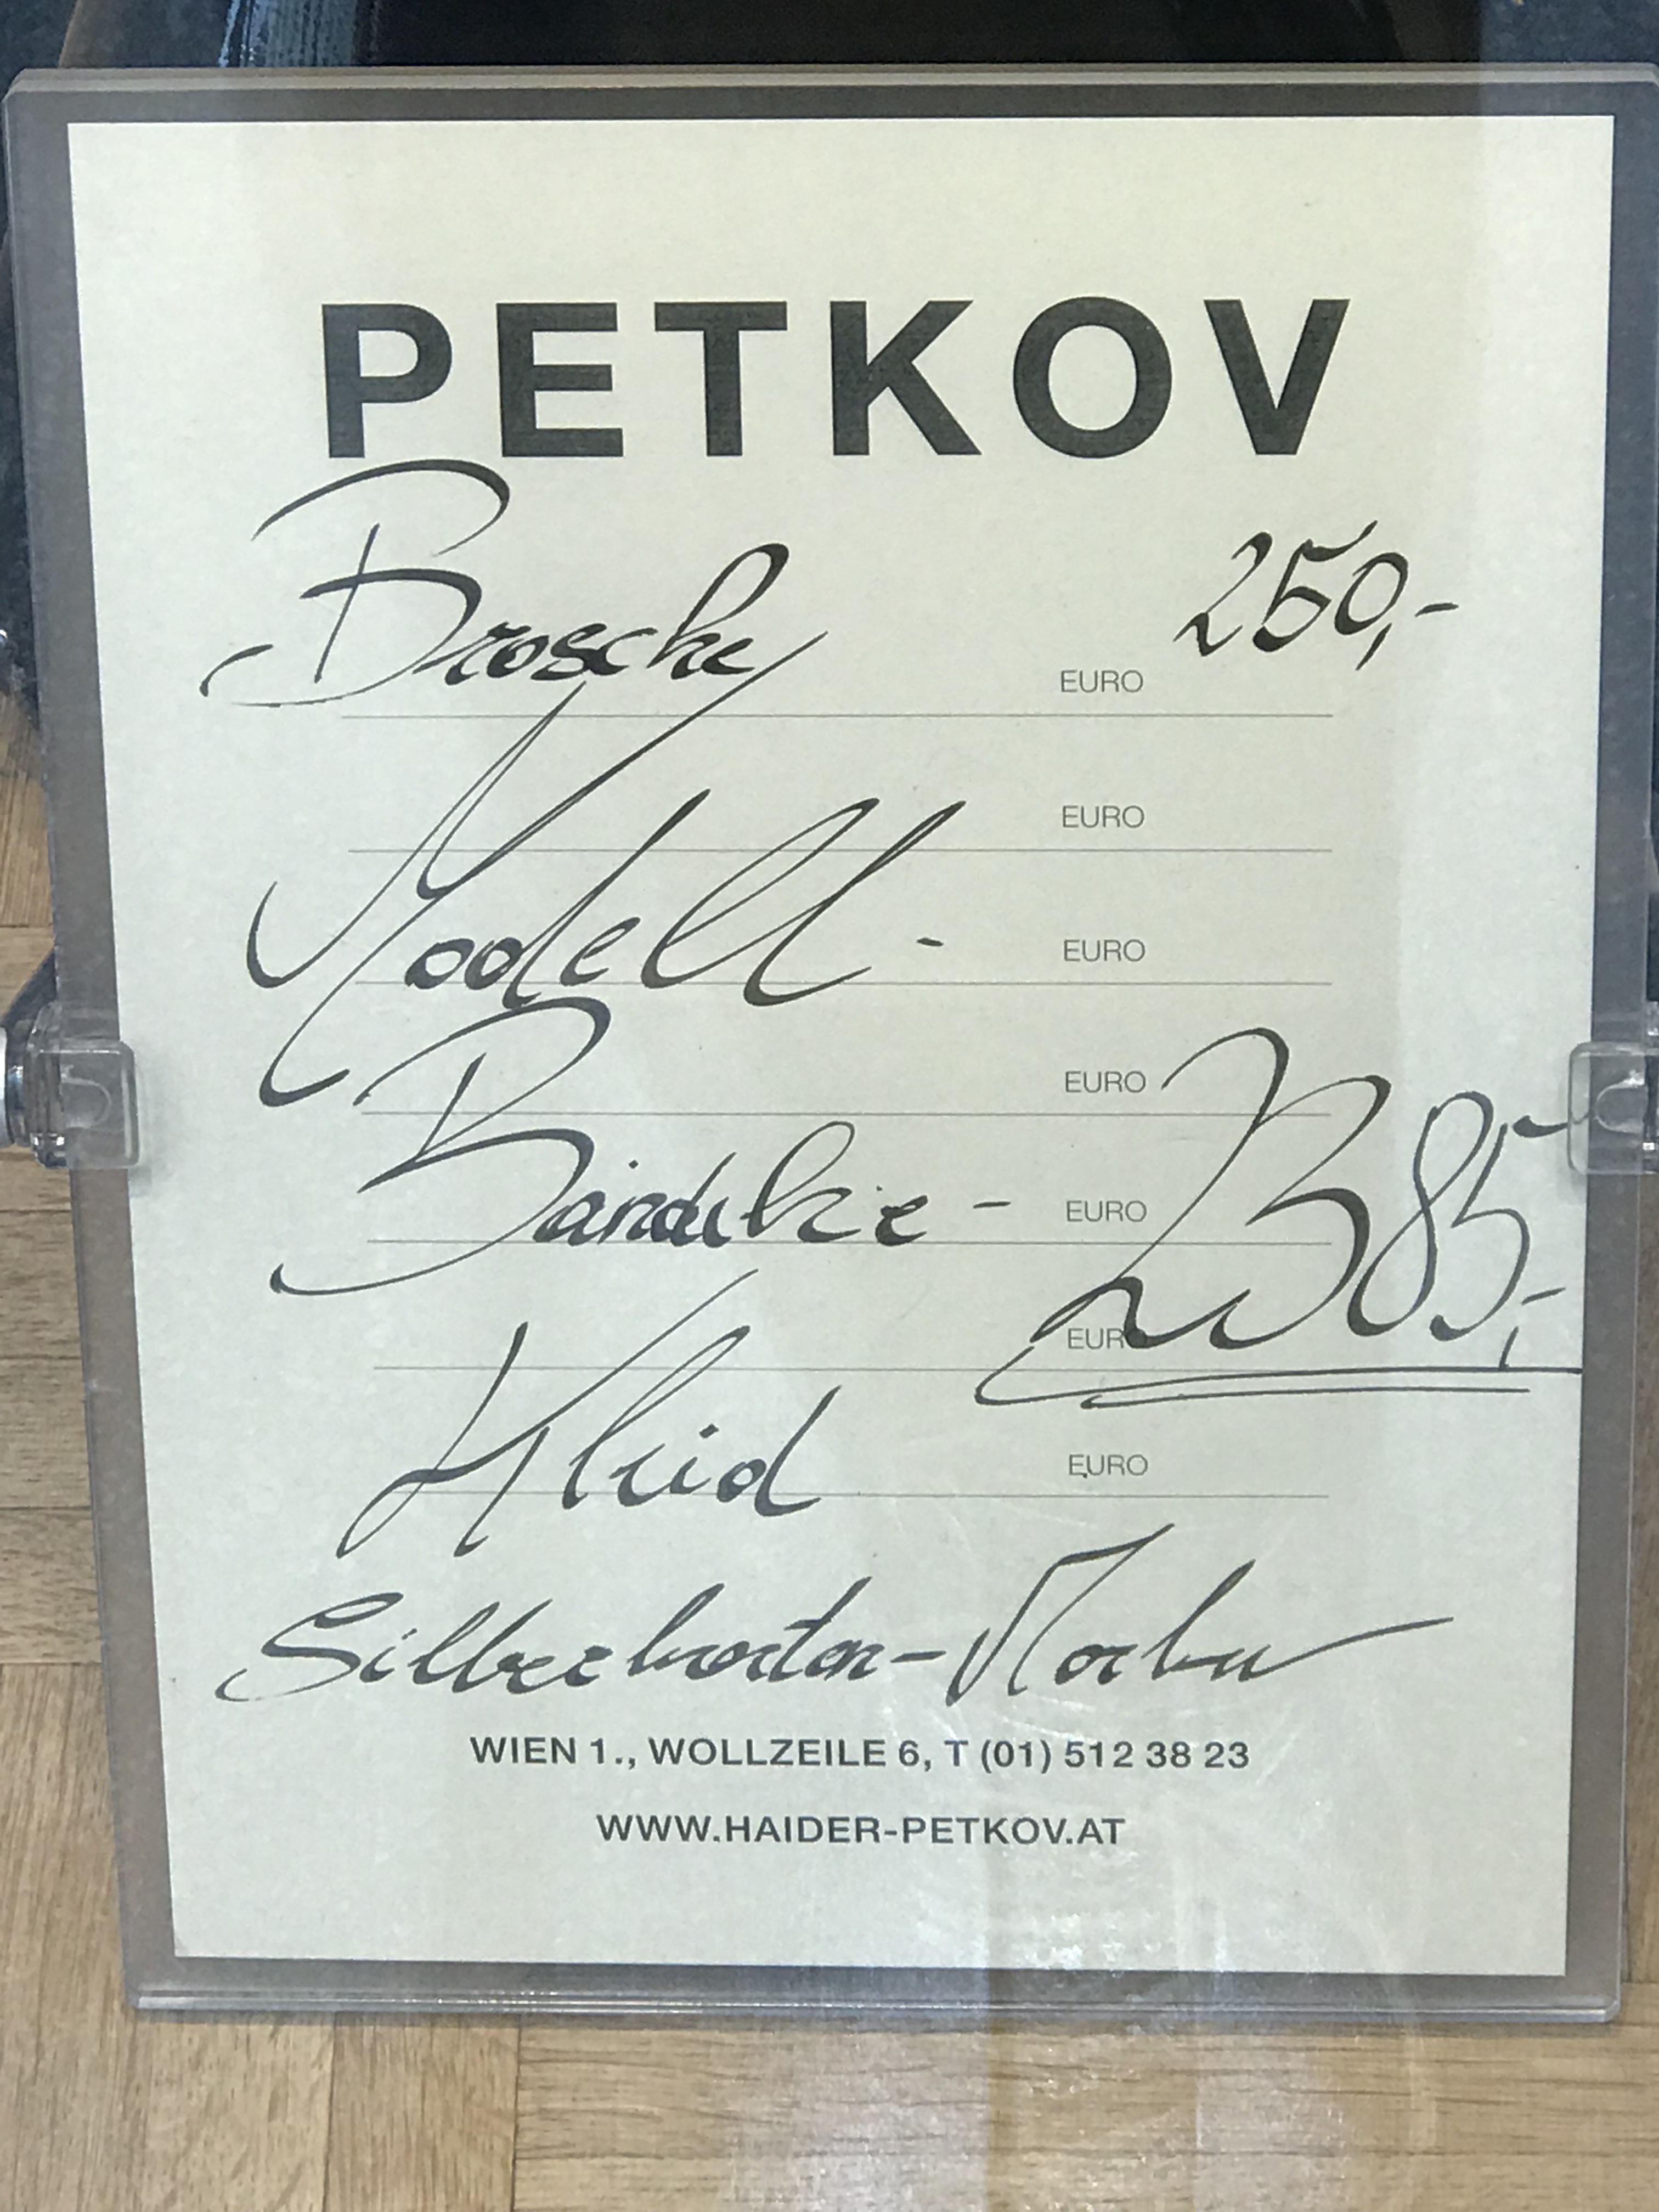 PETKOV
Brosche EURO 250,-
EURO
Modell - EURO
EURO
EURO 2385,-
EURO
Kleid EURO
WIEN 1., WOLLZEILE 6, T (01) 512 38 23
WWW.HAIDER-PETKOV.AT